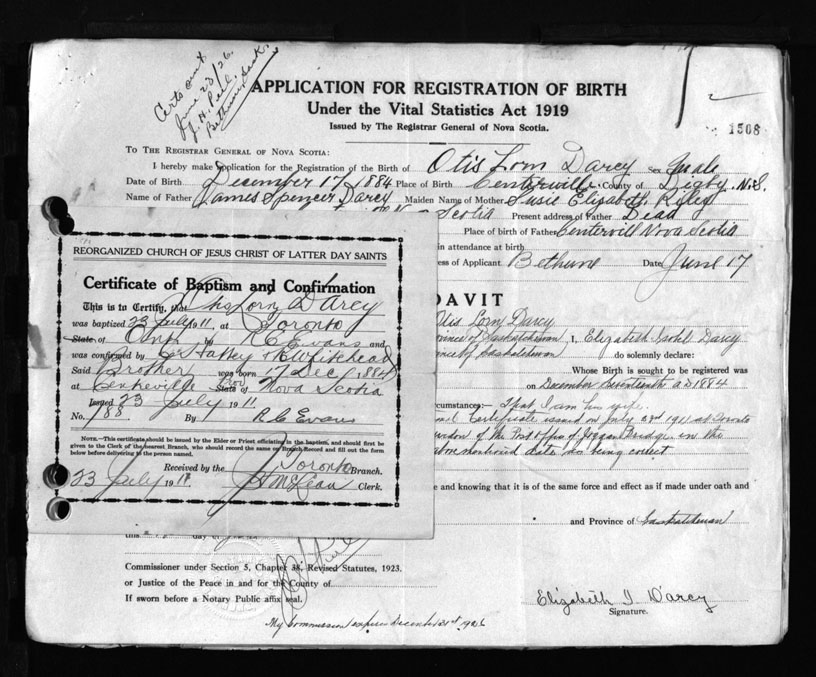 Certs out.
June 23/26.
J. H. Peel.
Bethune, Sask.
APPLICATION FOR REGISTRATION OF BIRTH
Under the Vital Statistics Act 1919
Issued by The Registrar General of Nova Scotia.
1508
TO THE REGISTRAR GENERAL OF NOVA SCOTIA:
I hereby make Application for the Registration of the Birth of Otis Lorn Darcy Sex Male
Date of Birth December 17 1884 Place of Birth Centerville County of Digby N.S.
Name of Father James Spencer Darcy Maiden Name of Mother Susie Elizabeth
Scotia Present address of Father Dead
Place of birth of Father Centervill Nova Scotia
in attendance at birth
ess of Applicant Bethune Date June 17
DAVIT
Otis Lorn Darcy
vince of Saskatchewan I, Elizabeth Isobel Darcy
vince of Saskatchewan do solemnly declare:
Whose Birth is sought to be registered was
on December Seventeenth A.D. 1884
cumstances:— That I am his wife.
Certificate issued on July 23rd 1911 at Toronto
of the Post Office of Joggin Bridge in the
mentioned date as being correct
e and knowing that it is of the same force and effect as if made under oath and
and Province of Saskatchewan
REORGANIZED CHURCH OF JESUS CHRIST OF LATTER DAY SAINTS
Certificate of Baptism and Confirmation
This is to Certify, that Otis Lorn D'Arcy
was baptized 23 July 1911, at Toronto
State of Ont. by R C Evans and
was confirmed by
Said Brother was born 17 Dec 1884
at Centreville Prov State of Nova Scotia
Issued 23 July 1911
No. 188 By R C Evans
NOTE.—This certificate should be issued by the Elder or Priest officiating in the baptism, and should first be
given to the Clerk of the nearest Branch, who should record the same on Branch Record and fill out the form
below before delivering to the person named.
Received by the Toronto Branch.
23 July 1911 J McLean Clerk.
day of
Commissioner under Section 5, Chapter 38, Revised Statutes, 1923.
or Justice of the Peace in and for the County of
If sworn before a Notary Public affix seal.
Elizabeth I D'arcy
Signature.
My Commission expires December 31st 1926